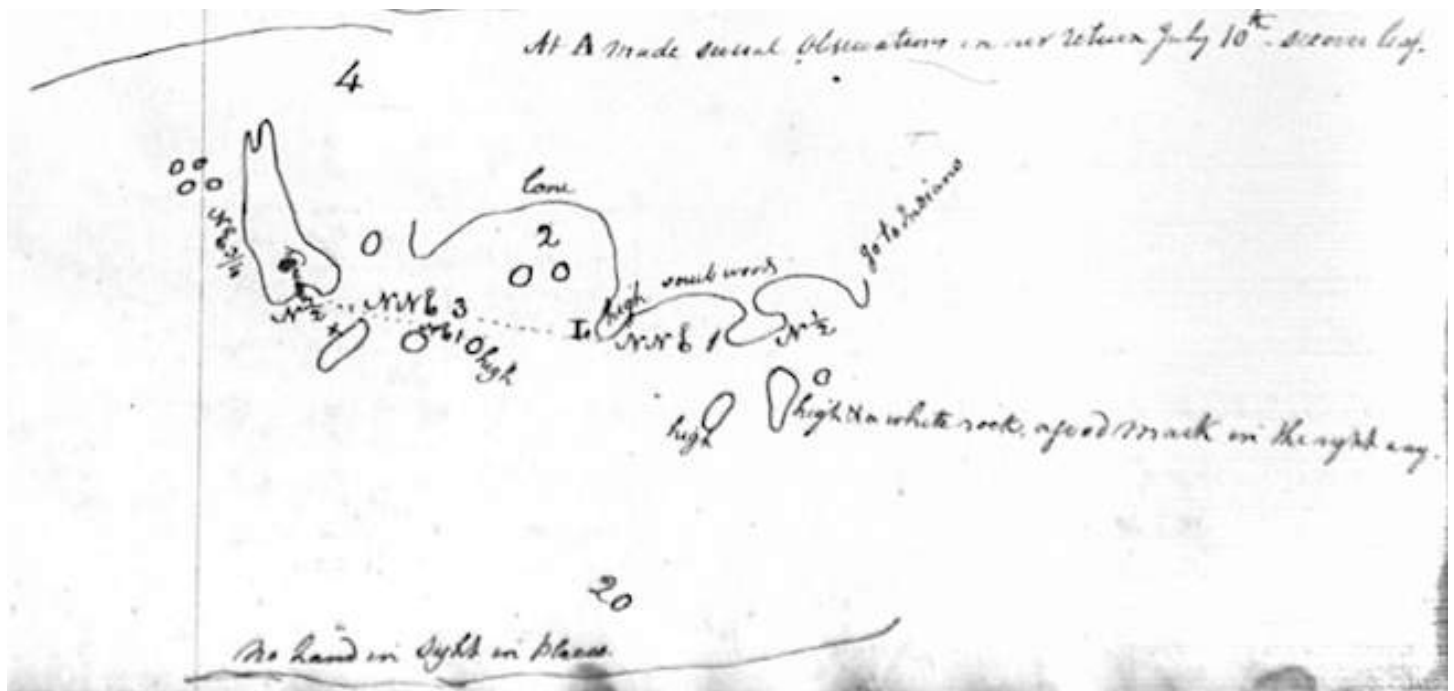 At A made several Observations in our return July 10th. see over leaf.
4
2
high small woods
go to Indians
NNE 3
N ½
Is
NNE 1
N ½
high
high
high & a white rock. a good mark in the right way.
20
No Land in Sight in places.